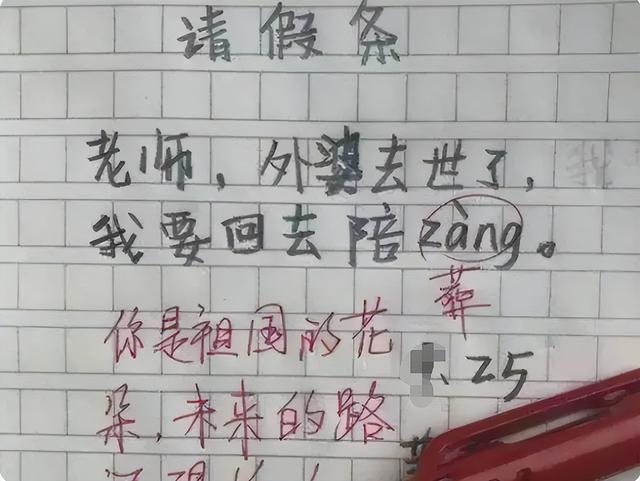 请假条
老师，外婆去世了，
我要回去陪zàng。
葬
你是祖国的花
.25
朵，未来的路